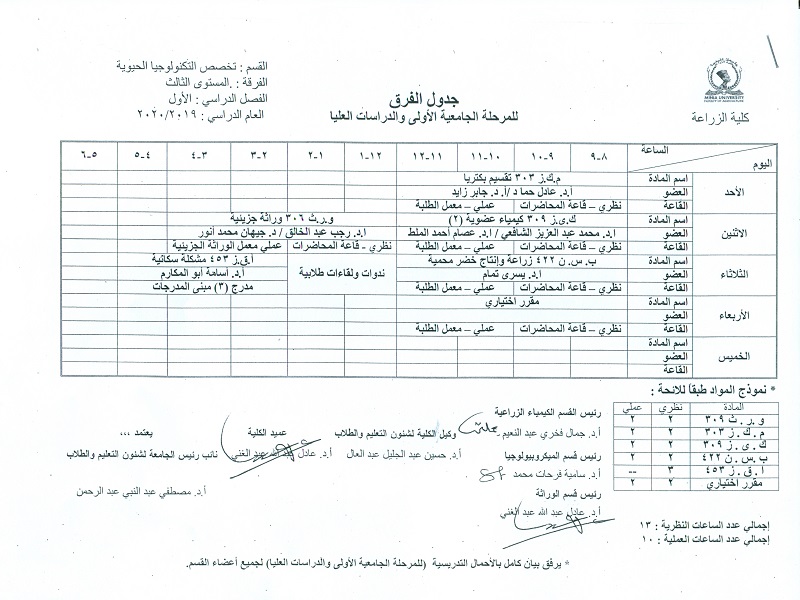 MINIA UNIVERSITY
FACULTY OF AGRICULTURE
كلية الزراعة
جدول الفرق
للمرحلة الجامعية الأولى والدراسات العليا
القسم : تخصص التكنولوجيا الحيوية
الفرقة : المستوى الثالث
الفصل الدراسي : الأول
العام الدراسي : ٢٠٢٠/٢٠١٩
الساعة
اليوم
٩-٨ ١٠-٩ ١١-١٠ ١٢-١١ ١-١٢ ٢-١ ٣-٢ ٤-٣ ٥-٤ ٦-٥
الأحد
اسم المادة م.ك.ز ٣٠٣ تقسيم بكتريا
العضو أ.د. عادل حماد /أ.د. جابر زايد
القاعة نظري – قاعة المحاضرات عملي – معمل الطلبة
الاثنين
اسم المادة ك.ى.ز ٣٠٩ كيمياء عضوية (٢) و.ر.ث ٣٠٦ وراثة جزيئية
العضو ا.د. محمد عبد العزيز الشافعي / ا.د. عصام احمد الملط ا.د. رجب عبد الخالق / د. جيهان محمد أنور
القاعة نظري – قاعة المحاضرات عملي – معمل الطلبة نظري - قاعة المحاضرات عملي معمل الوراثة الجزيئية
الثلاثاء
اسم المادة ب.س.ن ٤٢٢ زراعة وإنتاج خضر محمية ندوات ولقاءات طلابية أ.ق.ز ٤٥٣ مشكلة سكانية
العضو ا.د. يسرى تمام أ.د. أسامة أبو المكارم
القاعة نظري – قاعة المحاضرات عملي – معمل الطلبة مدرج (٣) مبنى المدرجات
الأربعاء
اسم المادة مقرر اختياري
العضو
القاعة نظري – قاعة المحاضرات عملي – معمل الطلبة
الخميس
اسم المادة
العضو
القاعة
* نموذج المواد طبقاً للائحة :
المادة نظري عملي
و . ر . ث ٣٠٩ ٢ ٢
م . ك . ز ٣٠٣ ٢ ٢
ك . ى . ز ٣٠٩ ٢ ٢
ب . س . ن ٤٢٢ ٢ ٢
ا . ق . ز ٤٥٣ ٣ --
مقرر اختياري ٢ ٢
إجمالي عدد الساعات النظرية : ١٣
إجمالي عدد الساعات العملية : ١٠
رئيس القسم الكيمياء الزراعية
أ.د. جمال فخري عبد النعيم
رئيس قسم الميكروبيولوجيا
أ.د. سامية فرحات محمد
رئيس قسم الوراثة
أ.د. عادل عبد الله عبد الغني
وكيل الكلية لشئون التعليم والطلاب
أ.د. حسين عبد الجليل عبد العال
عميد الكلية
أ.د. عادل عبد الله عبد الغني
يعتمد ،،،
نائب رئيس الجامعة لشئون التعليم والطلاب
أ.د. مصطفي عبد النبي عبد الرحمن
* يرفق بيان كامل بالأحمال التدريسية (للمرحلة الجامعية الأولى والدراسات العليا) لجميع أعضاء القسم.